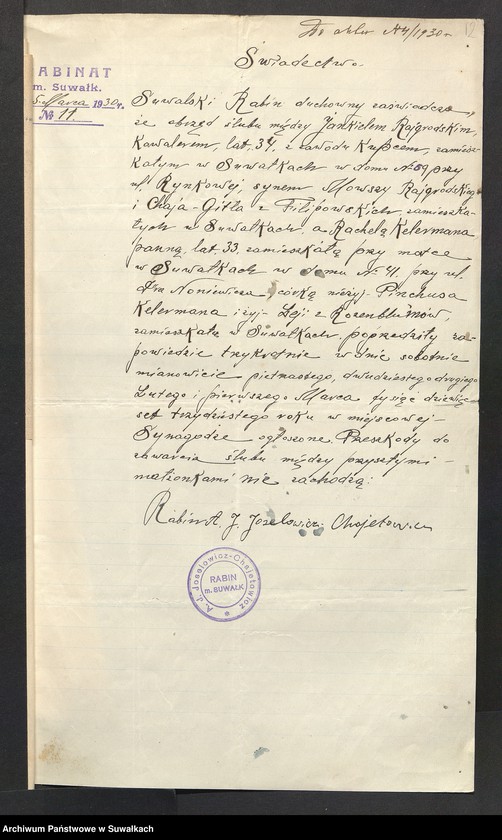 Do aktu № 4/1930 r.
12
Świadectwo.
RABINAT
m. Suwałk.
5 Marca 1930 r.
№ 11
Suwalski Rabin duchowny zaświadcza,
że obrzęd ślubu między Jankielem Rajgrodskim,
kawalerem, lat, 34, z zawodu kupcem, zamiesz-
kałym w Suwałkach w domu № 59 przy
ul. Rynkowej, synem Mowszy Rajgrodskiego
i Chaja-Gitla z Filipowskich zamieszka-
łych w Suwałkach, a Rachelą Kelermana
panną, lat 33, zamieszkałą przy matce
w Suwałkach w domu № 41. przy ul.
Noniewicza, córką nieżyj. Pinchusa
Kelermana i żyj. Leji z Rozenblumów,
zamieszkałą w Suwałkach, poprzedziły za-
powiedzie trzykrotnie w dnie sobotnie
mianowicie piętnastego, dwudziestego drugiego
Lutego i pierwszego Marca tysiąc dziewię-
set trzydziestego roku w miejscowej
Synagodze ogłoszone. Przeszkody do
zawarcia ślubu między przyszłymi
małżonkami nie zachodzą.
Rabin A. J. Joselowicz-Chajetowicz
A. J. Josielowicz-Chajetowicz
RABIN
m. SUWAŁK
Archiwum Państwowe w Suwałkach